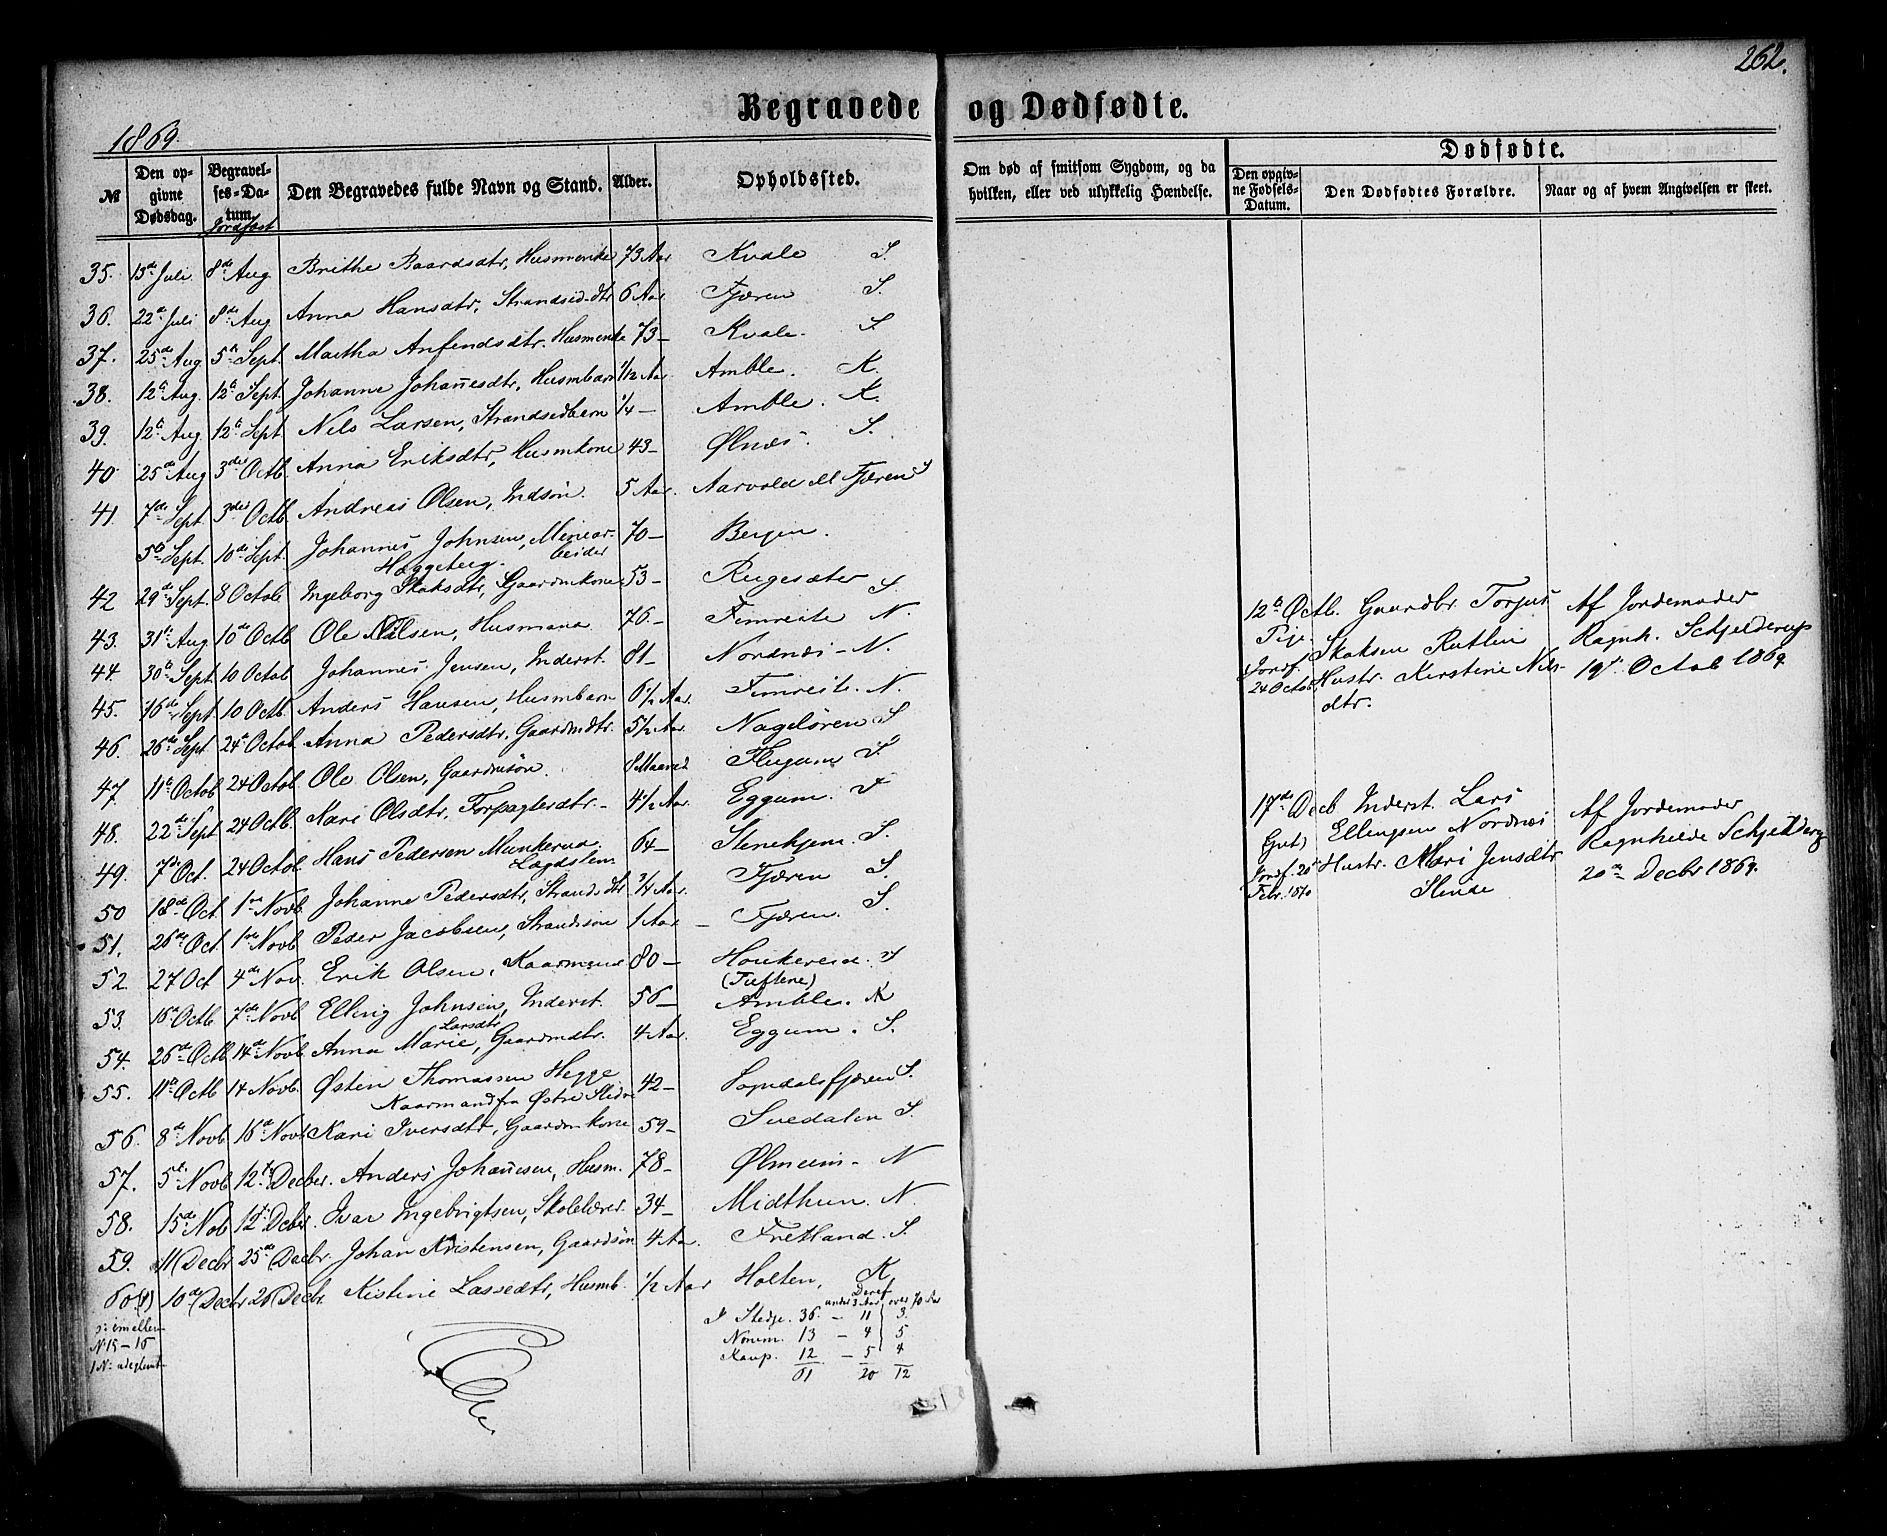 262.
Begravede og Dødfødte.
1869.
№
Den opgivne Dødsdag.
Begravelses-Datum.
Jordfæst
Den Begravedes fulde Navn og Stand.
Alder.
Opholdssted.
Om død af smitsom Sygdom, og da hvilken, eller ved ulykkelig Hændelse.
Dødfødte.
Den opgivne Fødsels-Datum.
Den Dødfødtes Forældre.
Naar og af hvem Angivelsen er skeet.
35. 13de Juli 8de Aug Brithe Baardsdtr, Husmenke 73 Aar Kvale S.
36. 22de Juli 8de Aug Anna Hansdtr, Strandsid.dtr 6 Aar Fjæren S.
37. 25de Aug 5te Sept Martha Anfendsdtr. Husmenke 73 – Kvale. S.
38. 12te Aug. 12te Sept Johanne Johannesdtr, Husmbarn 1/12 Aar Amble. K.
39. 12te Aug 12te Sept Nils Larsen, Strandsidbarn 1/4 – Amble. K.
40 25de Aug 3die Octb. Anna Eriksdtr, Husmkone 43 – Ølnæs. S.
41. 7de Sept 3die Octb. Andreas Olsen, Indsøn. 5 Aar. Aarvold Fjæren S
5te Sept. 10de Sept. Johannes Johnsen, Minear- 70 – Bergen.
beider
42 29de Sept. 8 Octob Ingeborg Skaksdtr, Gaardmkone 53 – Rugesæter S.
43. 31te Aug 10de Octb Ole Nilsen, Husmand 76. – Fimreite N.
44. 30te Sept 10 Octob Johannes Jensen, Inderst. 81 – Nordnæs – N.
45. 16de Sept. 10 Octb. Anders Hansen, Husmbarn 6 1/2 Aar. Fimreite. N.
46. 26de Sept 24de Octob Anna Pedersdtr. Gaardmdtr. 5 1/2 Aar. Nageløren S
47 11te Octob 24 Octob Ole Olsen, Gaardmsøn. 8 Maaned Flugum S
48. 22de Sept 24 Octb. Kari Olsdtr. Forpagterdtr – 4 1/2 Aar. Eggum. S
49. 7de Oct. 24 Octob Hans Pedersen Munkerud 64 – Stenehjem S.
Lægdslem
50 18de Oct 1ste Novb. Johanne Pedersdtr, Strands.dtr 3/4 Aar. Fjæren S.
51. 26de Oct 1ste Novb Peder Jacobsen, Strandsøn 1 Aar – Fjæren. S.
52. 27 Oct 4de Nov. Erik Olsen, Kaarmand 80 – Houkereid. S
(Tuftene)
53. 16de Octb 7de Novb Elling Johnsen, Inderst. 56 – Amble. K
Larsdtr
54. 26de Octb 14de Novb. Anna Marie, Gaardmdtr. 4 Aar. Eggum. S.
55. 11te Octb 14 Novb. Østen Thomassen Hegge 42 – Sogndalsfjæren S.
Kaarmand fra Østre Slidre
56. 8de Novb 16de Novb Kari Iversdtr, Gaardmkone 59 – Svedalen S.
57. 5te Novb 12te Decber. Anders Johannesen, Husm. 78 – Ølmeim – N
58. 15de Nob 12te Dcber. Ivar Ingebrigtsen, Skolelærer. 34 – Midthun. N.
59. 11 Decbr 25de Decbr. Johan Kristensen, Gaardsøn 4 Aar. Fretland. S.
60 (1) 10de Decbr 26 Decbr. Kistine Lassedtr, Husmb. 1/2 Aar Holten, K.
imellem
N. 15 – 16
1 N: udeglemt
Deraf
under 3 Aar over 70 Aar
I Stedje. 36. – 11 3.
Norum. 13 – 4 5
Kaup. 12 – 5 4
61 20 12
12te Octb. Gaardbr. Torjus Af Jordemoder
Pige Skaksen Rutlin Ragnh. Schjelderup
Jordf. Hustr. Kirstine Nils- 19de Octob 1869.
24 Octob.
dtr.
17de Decb Inderst. Lars Af Jordemoder
Gut) Ellingsen Nordnæs Ragnhilde Schjelderup
Jordf. 20 Hustr. Mari Jensdtr 20de Decbr 1869.
Febr. 1870 Slinde